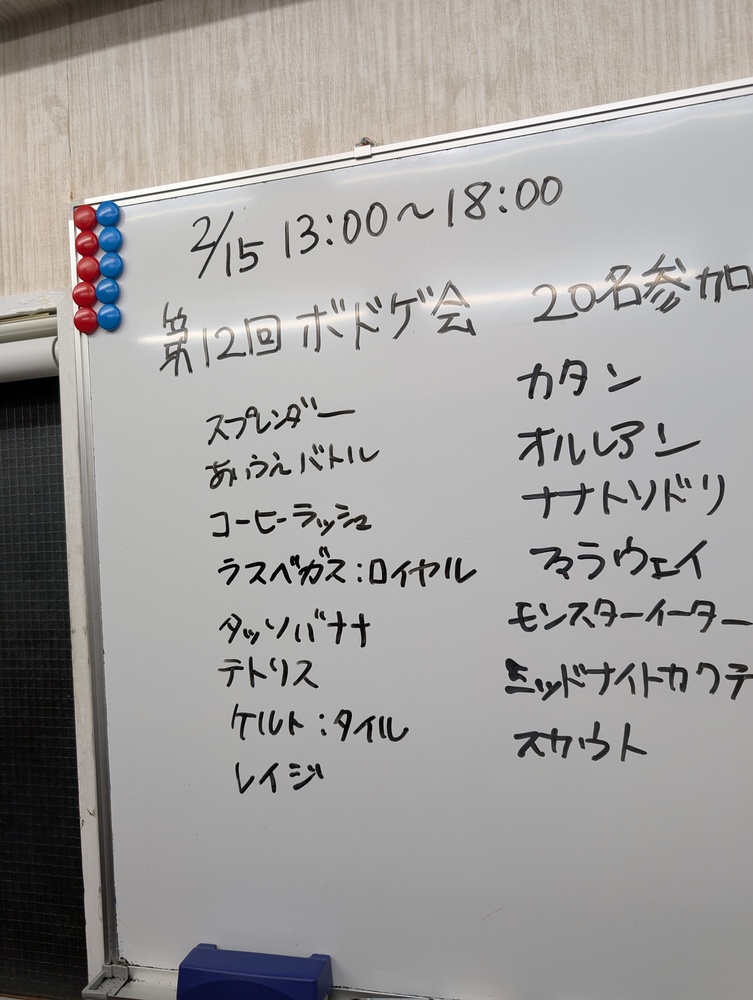 2/15 13:00～18:00
第12回 ボドゲ会 20名参加
スプレンダー
あいうえバトル
コーヒーラッシュ
ラスベガス:ロイヤル
タッソバナナ
テトリス
ケルト:タイル
レイジ
カタン
オルレアン
ナナトリドリ
ファラウェイ
モンスターイーター
ミッドナイトカクテ
スカウト